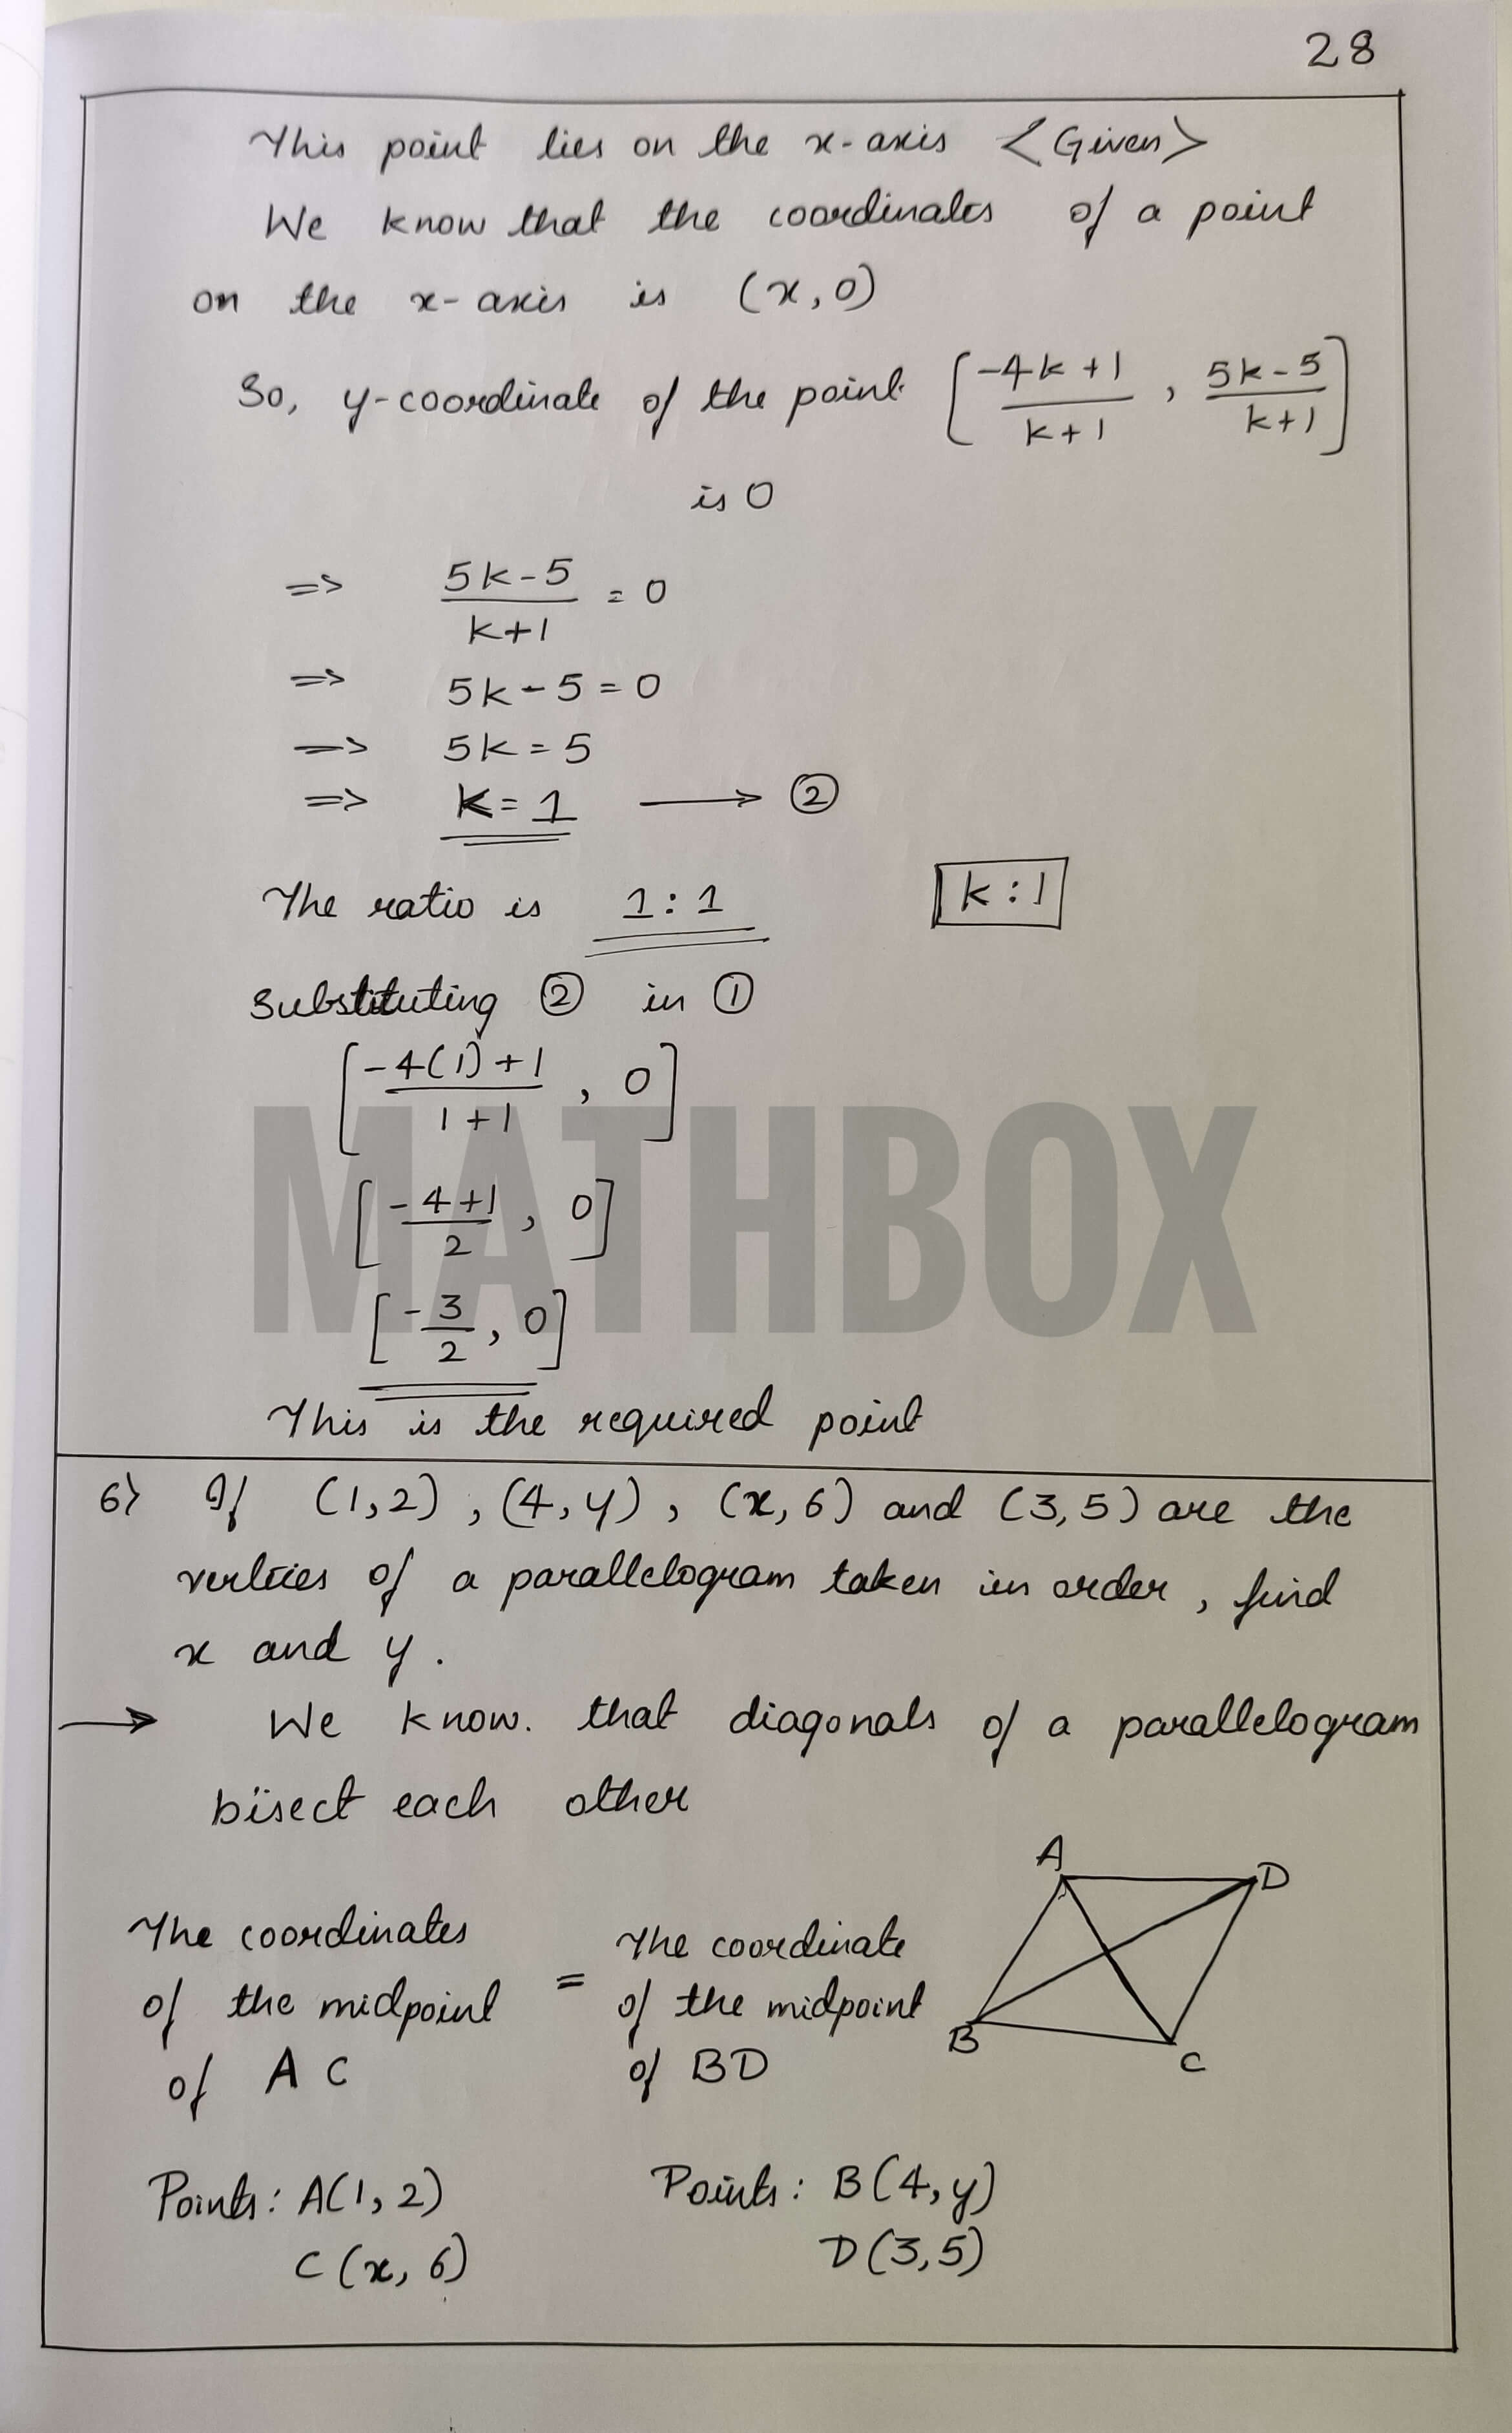 28
This point lies on the x-axis <Given>
We know that the coordinates of a point
on the x-axis is (x,0)
So, y-coordinate of the point [(-4k+1)/(k+1), (5k-5)/(k+1)]
is 0
=> (5k-5)/(k+1) = 0
=> 5k-5=0
=> 5k=5
=> k=1 ⟶ ②
The ratio is 1:1 k:1
Substituting ② in ①
[(-4(1)+1)/(1+1), 0]
[(-4+1)/2, 0]
[-3/2, 0]
MATHBOX
This is the required point
6) If (1,2), (4,y), (x,6) and (3,5) are the
vertices of a parallelogram taken in order, find
x and y.
→ We know. that diagonals of a parallelogram
bisect each other
A
D
B
C
The coordinates
of the midpoint
of AC
=
The coordinate
of the midpoint
of BD
Points: A(1,2)
C(x,6)
Points: B(4,y)
D(3,5)